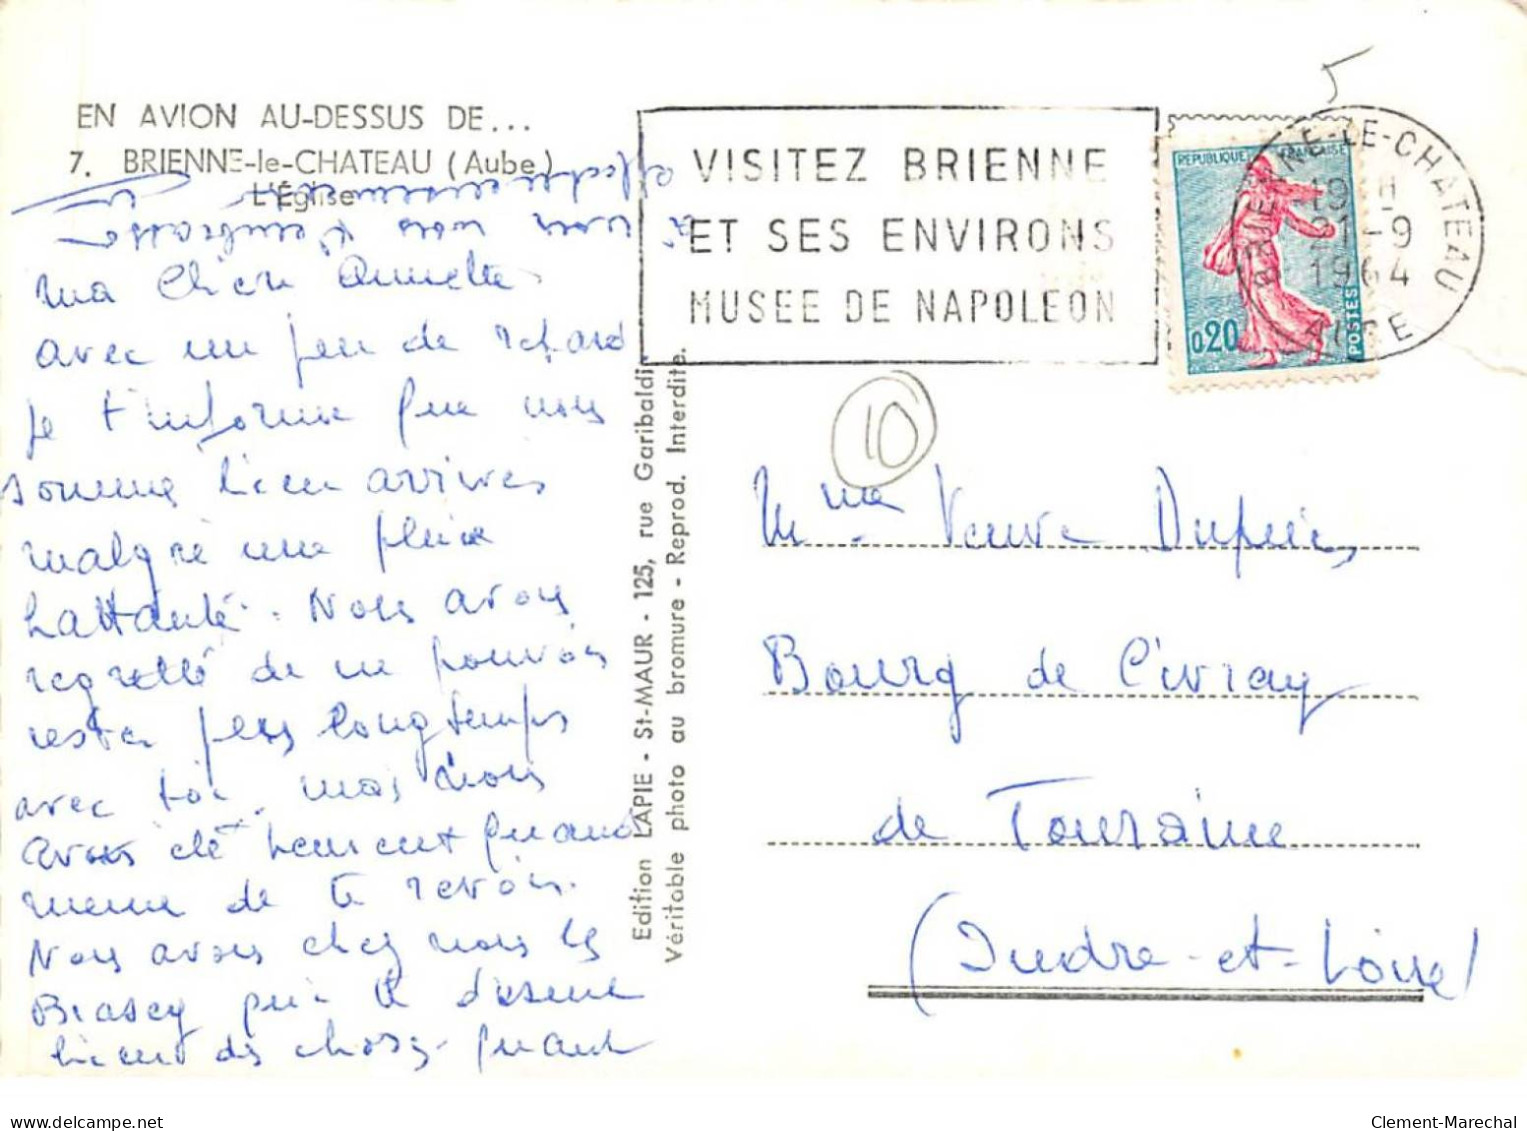 EN AVION AU-DESSUS DE...
7. BRIENNE-le-CHATEAU (Aube)
L'Église
ma Chere Annette
avec un peu de retard
je t'informe que nous
somme bien arrives
malgre une pluie
battante. Nous avons
regretté de ne pouvoir
rester plus longtemps
avec toi, mais nous
avons été heureux quand
meme de te revoir.
Nous avons chez nous les
qui te disent
bien des choses quant
à nous nous t'embrassons
affectueusement
Edition LAPIE - St-MAUR - 125, rue Garibaldi
Véritable photo au bromure - Reprod. Interdite.
VISITEZ BRIENNE
ET SES ENVIRONS
MUSEE DE NAPOLEON
REPUBLIQUE FRANÇAISE
0,20
POSTES
BRIENNE-LE-CHATEAU
19 H
21-9
1964
AUBE
5
10
Mme Veuve Dupuis
Bourg de Civray
de Touraine
(Indre-et-Loire)
Clement-Marechal